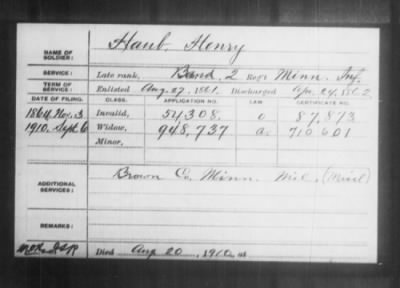 NAME OF SOLDIER: Haub, Henry
SERVICE: Late rank, Band, 2 Reg't Minn. Inf.
TERM OF SERVICE: Enlisted Aug. 27, 1861. Discharged Apr. 24, 1862
DATE OF FILING. CLASS. APPLICATION NO. LAW CERTIFICATE NO.
1864 Nov. 3 Invalid, 54,308. 87,873
1910, Sept. 6 Widow, 948,737 710,601
Minor,
ADDITIONAL SERVICES: Brown Co. Minn. Mil.
REMARKS:
Died Aug 20, 1910, at